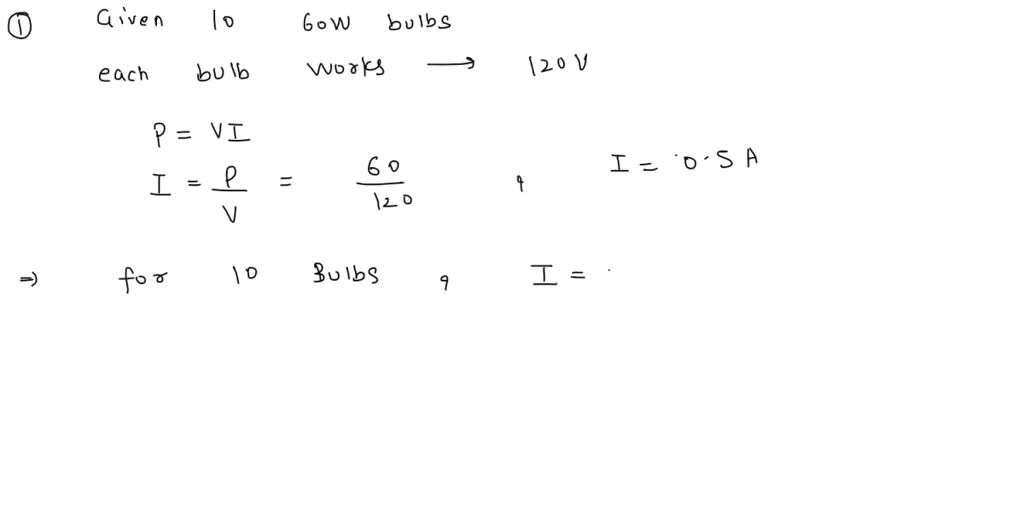 ① Given 10 60W bulbs
each bulb works → 120V
P = VI
I = P/V = 60/120 , I = 0.5 A
⇒ for 10 Bulbs , I =